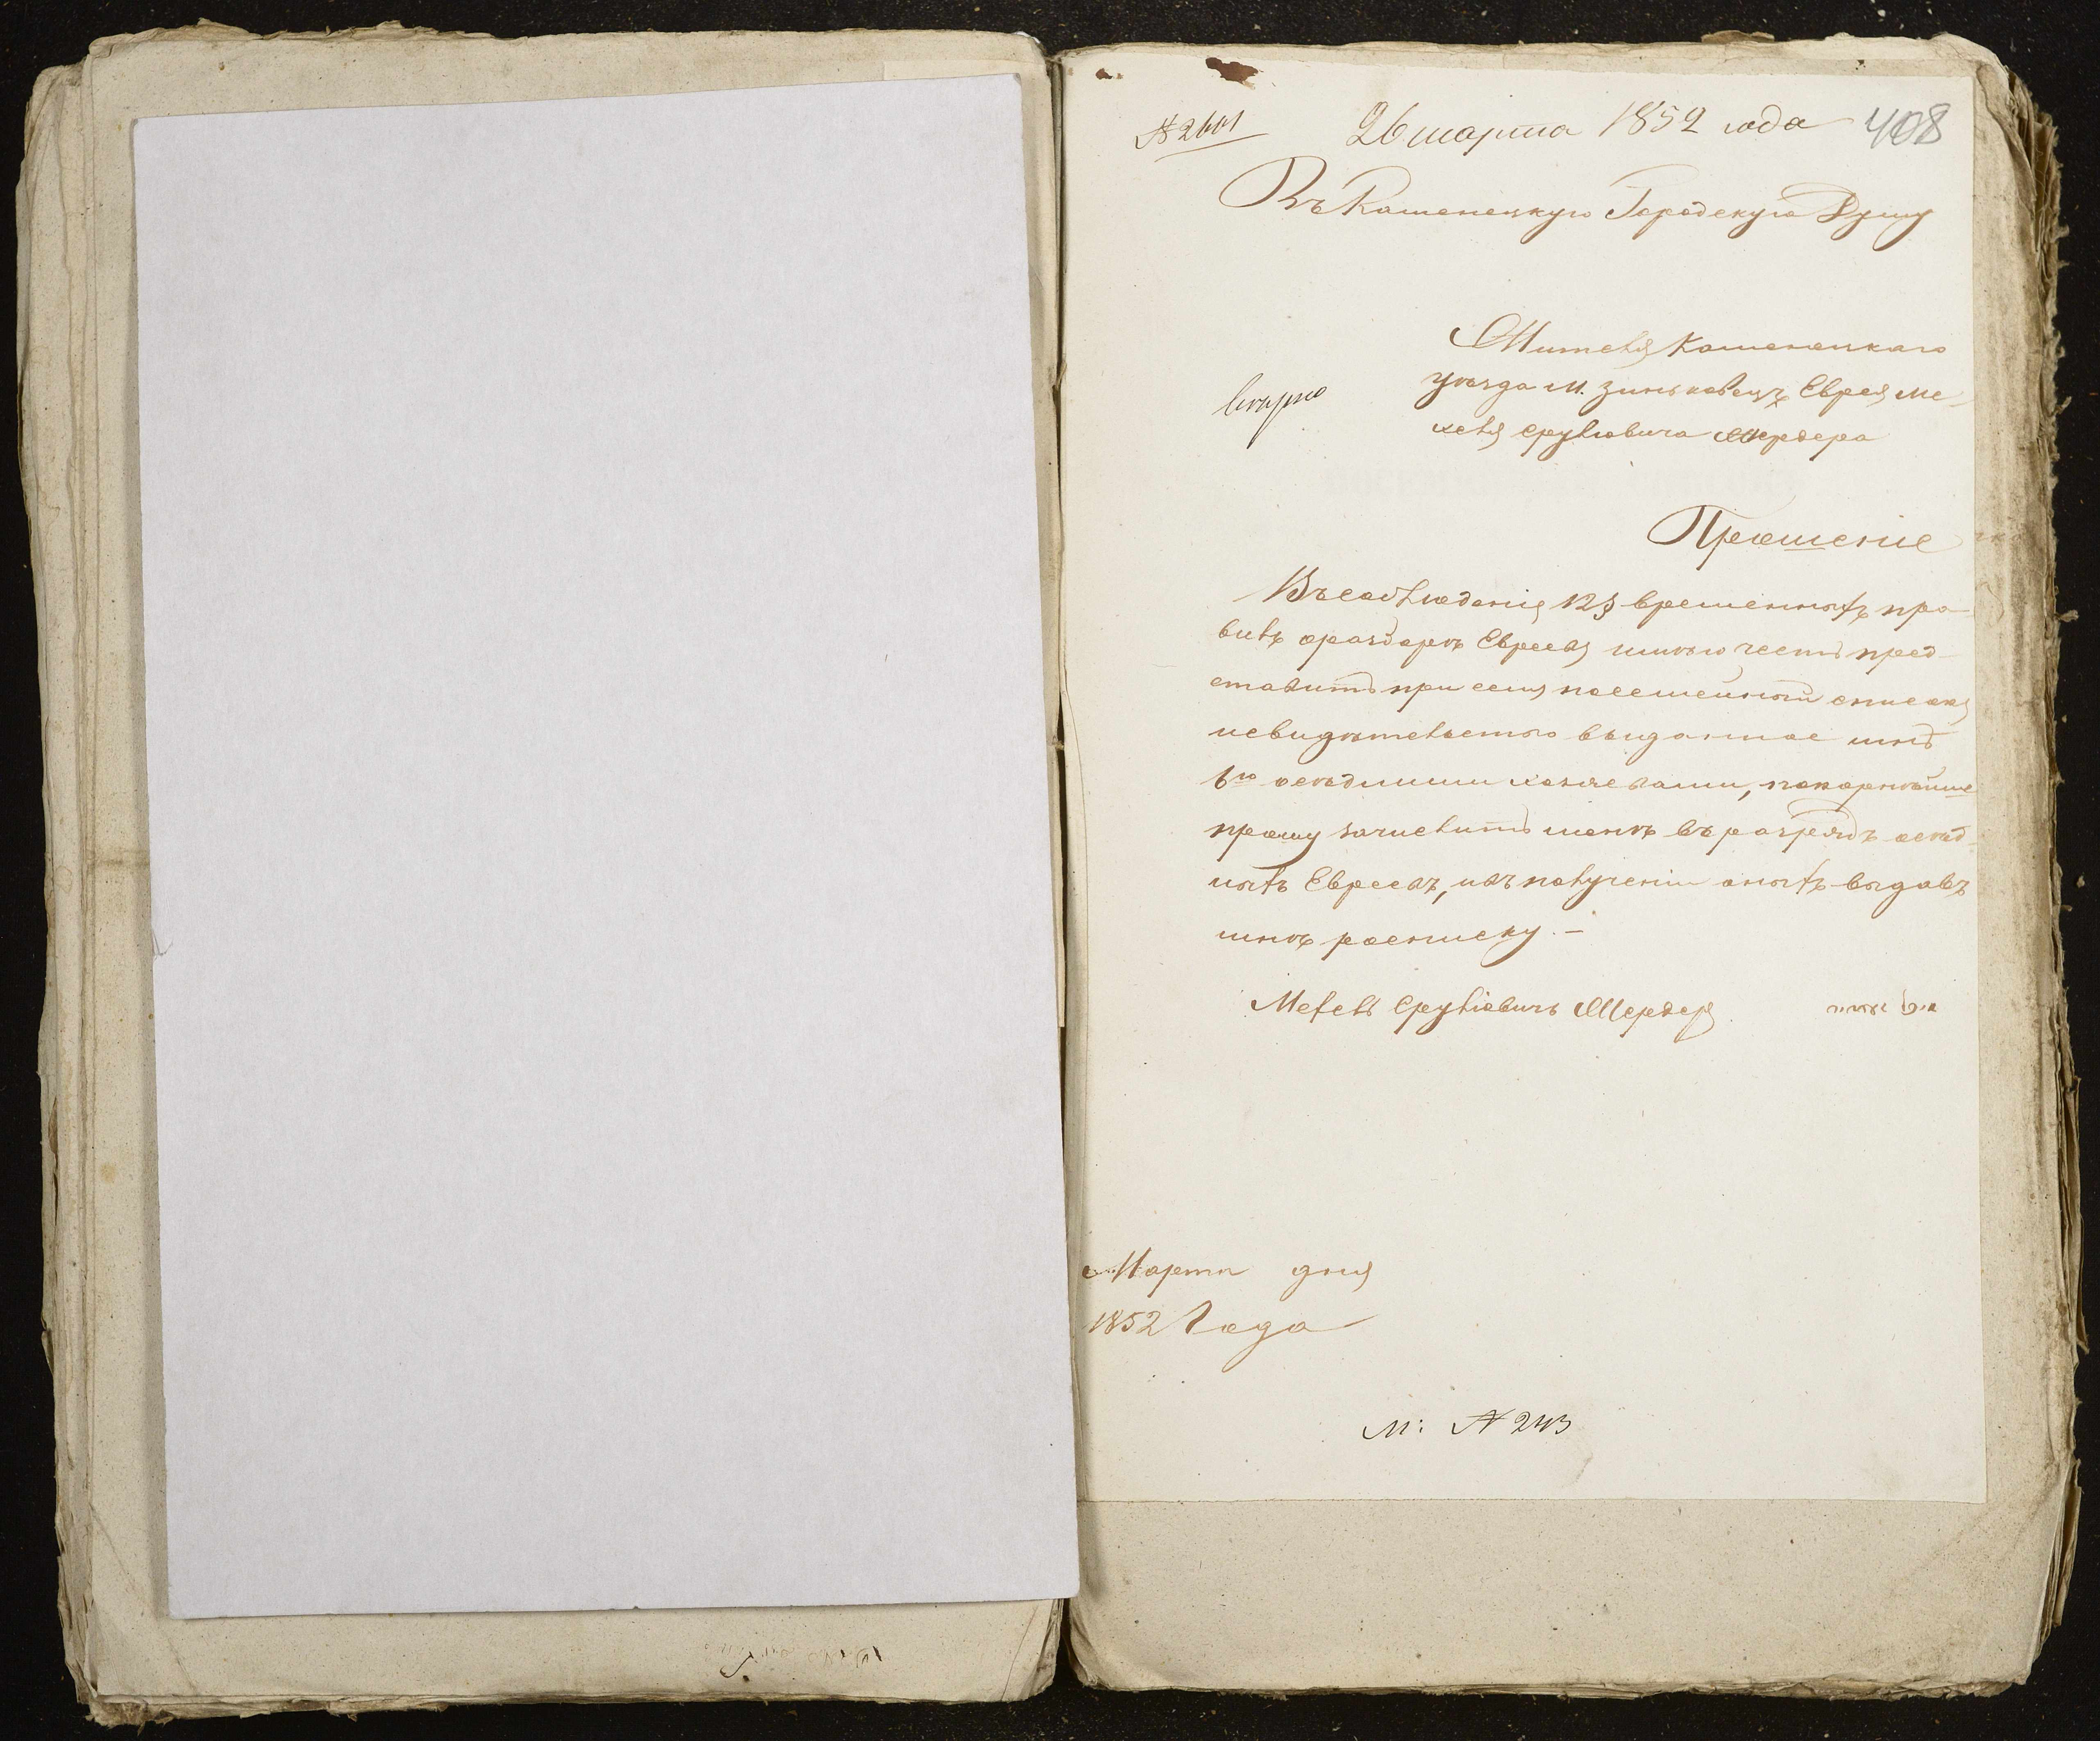 № 2601
26 марта 1852 года
408
Въ Каменецкую Городскую Думу
Жителя Каменецкаго
уѣзда м. Зиньковецъ Еврея Ме-
хеля Срулювича Шердера
Прошеніе
Въ соблюденіе 12 § временныхъ пра-
вилъ о разборѣ Евреевъ имѣю честь пред-
ставить при семъ посемейный списокъ
и свидѣтельство выданное мнѣ
6ю осѣдлыми хозяевами, покорнѣйше
прошу зачислить меня въ разрядъ осѣд-
лыхъ Евреевъ, и въ полученіи оныхъ выдать
мнѣ росписку. —
Мехель Срулювичъ Шердеръ
Марта дня
1852 Года
М: № 243